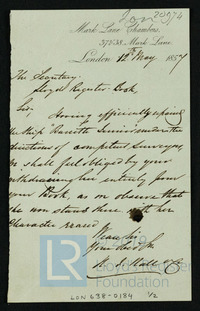 Lon 20974
Mark Lane Chambers,
37 & 38, Mark Lane,
London 12th May 1857
The Secretary
Lloyds Register Book
Sir
Having officially opened
the Ship Gazette Senior under the
directions of competent Surveyors
shall feel obliged by your
withdrawing her entirely from
your Book, as we observe that
she now stands there with her
Character erased
We are Sir
Your Obed
Hall & Co
LON 638-0184 1/2
Lloyd's Register
Foundation